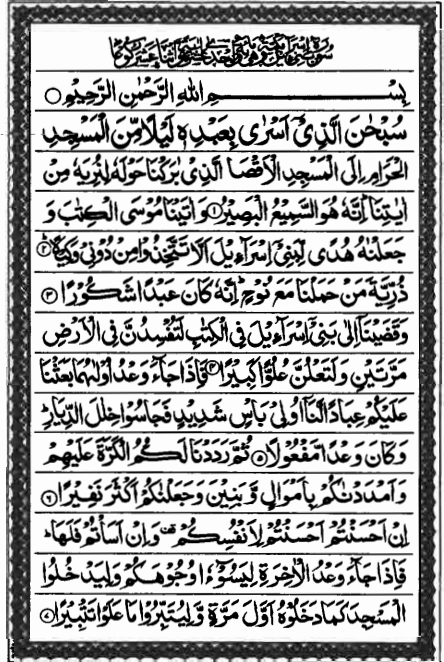 سورة بنی اسرآءیل مکیة وهی مائة واحدی عشرة اٰیة واثنا عشر رکوعا
بِسْمِ اللهِ الرَّحْمٰنِ الرَّحِیْمِ ○
سُبْحٰنَ الَّذِیْۤ اَسْرٰی بِعَبْدِهٖ لَیْلًا مِّنَ الْمَسْجِدِ
الْحَرَامِ اِلَی الْمَسْجِدِ الْاَقْصَا الَّذِیْ بٰرَكْنَا حَوْلَهٗ لِنُرِیَهٗ مِنْ
اٰیٰتِنَا ؕ اِنَّهٗ هُوَ السَّمِیْعُ الْبَصِیْرُ ۝۱ وَ اٰتَیْنَا مُوْسَی الْكِتٰبَ وَ
جَعَلْنٰهُ هُدًی لِّبَنِیْۤ اِسْرَآءِیْلَ اَلَّا تَتَّخِذُوْا مِنْ دُوْنِیْ وَكِیْلًا ۝۲
ذُرِّیَّةَ مَنْ حَمَلْنَا مَعَ نُوْحٍ ؕ اِنَّهٗ كَانَ عَبْدًا شَكُوْرًا ۝۳
وَ قَضَیْنَاۤ اِلٰی بَنِیْۤ اِسْرَآءِیْلَ فِی الْكِتٰبِ لَتُفْسِدُنَّ فِی الْاَرْضِ
مَرَّتَیْنِ وَ لَتَعْلُنَّ عُلُوًّا كَبِیْرًا ۝۴ فَاِذَا جَآءَ وَعْدُ اُوْلٰىهُمَا بَعَثْنَا
عَلَیْكُمْ عِبَادًا لَّنَاۤ اُولِیْ بَاْسٍ شَدِیْدٍ فَجَاسُوْا خِلٰلَ الدِّیَارِ ؕ
وَ كَانَ وَعْدًا مَّفْعُوْلًا ۝۵ ثُمَّ رَدَدْنَا لَكُمُ الْكَرَّةَ عَلَیْهِمْ
وَ اَمْدَدْنٰكُمْ بِاَمْوَالٍ وَّ بَنِیْنَ وَ جَعَلْنٰكُمْ اَكْثَرَ نَفِیْرًا ۝۶
اِنْ اَحْسَنْتُمْ اَحْسَنْتُمْ لِاَنْفُسِكُمْ ۫ وَ اِنْ اَسَاْتُمْ فَلَهَا ؕ
فَاِذَا جَآءَ وَعْدُ الْاٰخِرَةِ لِیَسُوْٓءٗا وُجُوْهَكُمْ وَ لِیَدْخُلُوا
الْمَسْجِدَ كَمَا دَخَلُوْهُ اَوَّلَ مَرَّةٍ وَّ لِیُتَبِّرُوْا مَا عَلَوْا تَتْبِیْرًا ۝۷